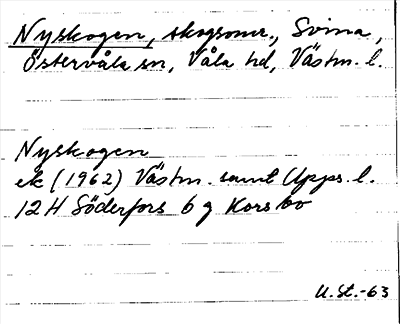 Nyskogen, skogsomr., Svina,
Östervåla sn, Våla hd, Västm. l.
Nyskogen
ek (1962) Västm. samt Upps. l.
12H Söderfors 6 g Korsbo
U.St.-63